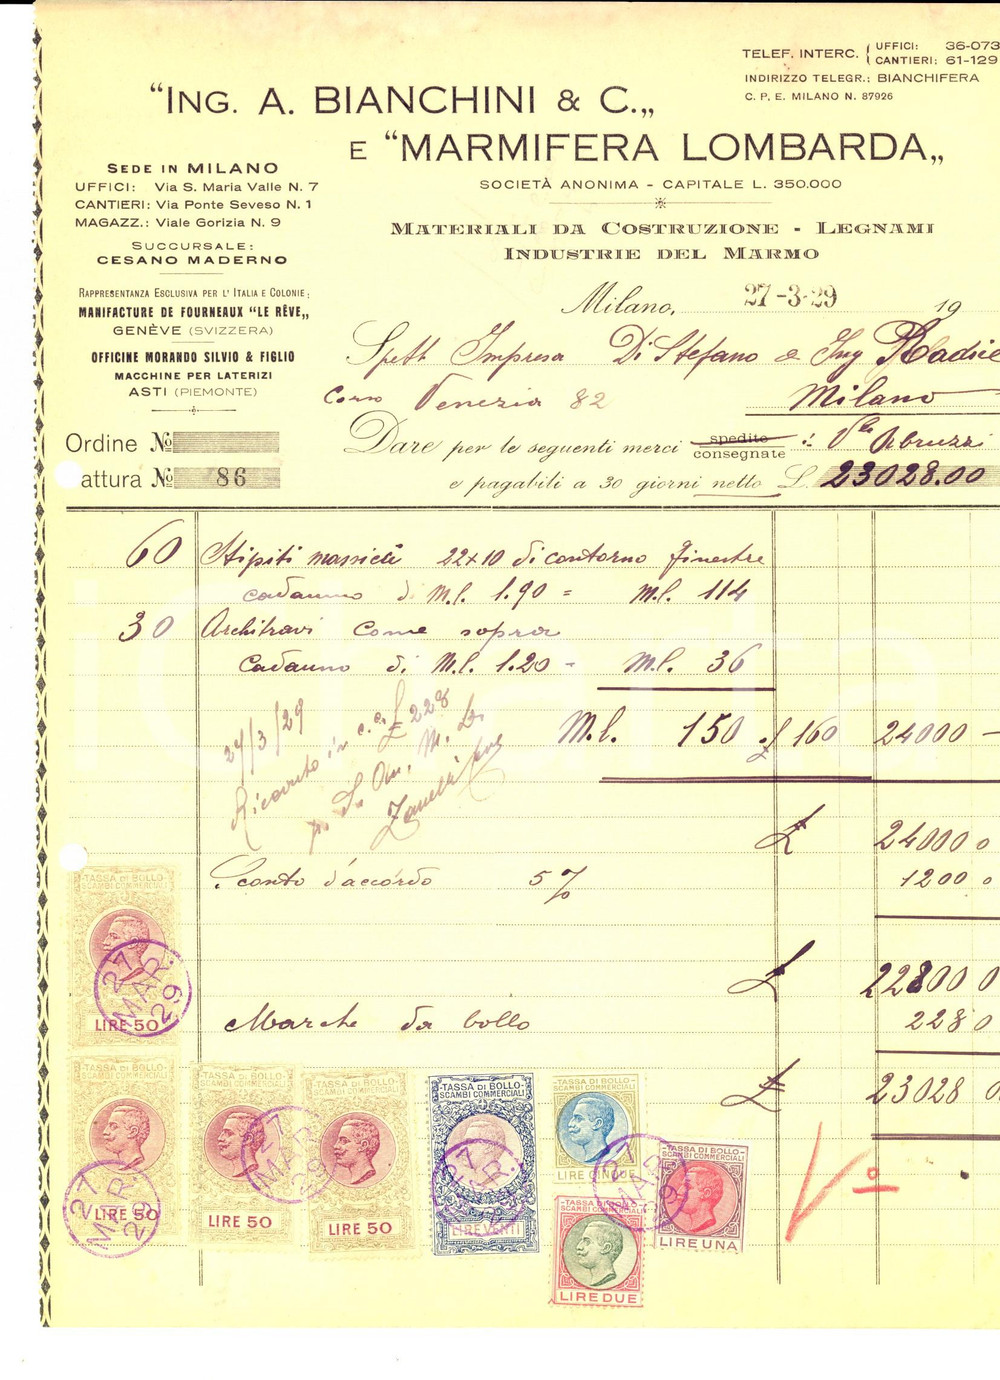 TELEF. INTERC. { UFFICI: 36-073
CANTIERI: 61-129
INDIRIZZO TELEGR.: BIANCHIFERA
C. P. E. MILANO N. 87926
"ING. A. BIANCHINI & C.„
E "MARMIFERA LOMBARDA„
SOCIETÀ ANONIMA - CAPITALE L. 350.000
MATERIALI DA COSTRUZIONE - LEGNAMI
INDUSTRIE DEL MARMO
SEDE IN MILANO
UFFICI: Via S. Maria Valle N. 7
CANTIERI: Via Ponte Seveso N. 1
MAGAZZ.: Viale Gorizia N. 9
SUCCURSALE:
CESANO MADERNO
RAPPRESENTANZA ESCLUSIVA PER L'ITALIA E COLONIE:
MANIFACTURE DE FOURNEAUX "LE RÊVE„
GENÈVE (SVIZZERA)
OFFICINE MORANDO SILVIO & FIGLIO
MACCHINE PER LATERIZI
ASTI (PIEMONTE)
Milano, 27-3-29 19
Spett Impresa Di Stefano e Ing Radice
Corso Venezia 82 Milano
Ordine No
attura No 86
Dare per le seguenti merci spedite consegnate : Vle Abruzzi
e pagabili a 30 giorni netto L. 23028.00
60 Stipiti massicci 22x10 di contorno finestre
cadauno di M.l. 1.90 = M.l. 114
30 Architravi come sopra
cadauno di M.l. 1.20 = M.l. 36
M.l. 150 £ 160 24000 —
27/3/29
Ricevuto in c.c. £ 228
Zanelli
£ 24000 0
Sconto d'accordo 5% 1200 0
£ 22800 0
Marche da bollo 228 0
£ 23028 0
TASSA DI BOLLO
SCAMBI COMMERCIALI
LIRE 50
27 MAR. 29
TASSA DI BOLLO
SCAMBI COMMERCIALI
LIRE 50
27 MAR. 29
TASSA DI BOLLO
SCAMBI COMMERCIALI
LIRE 50
27 MAR. 29
TASSA DI BOLLO
SCAMBI COMMERCIALI
LIRE 50
TASSA DI BOLLO
SCAMBI COMMERCIALI
LIRE VENTI
27 MAR. 29
TASSA DI BOLLO
SCAMBI COMMERCIALI
LIRE CINQUE
27 MAR. 29
SCAMBI COMMERCIALI
LIRE DUE
TASSA DI BOLLO
SCAMBI COMMERCIALI
LIRE UNA
Vo